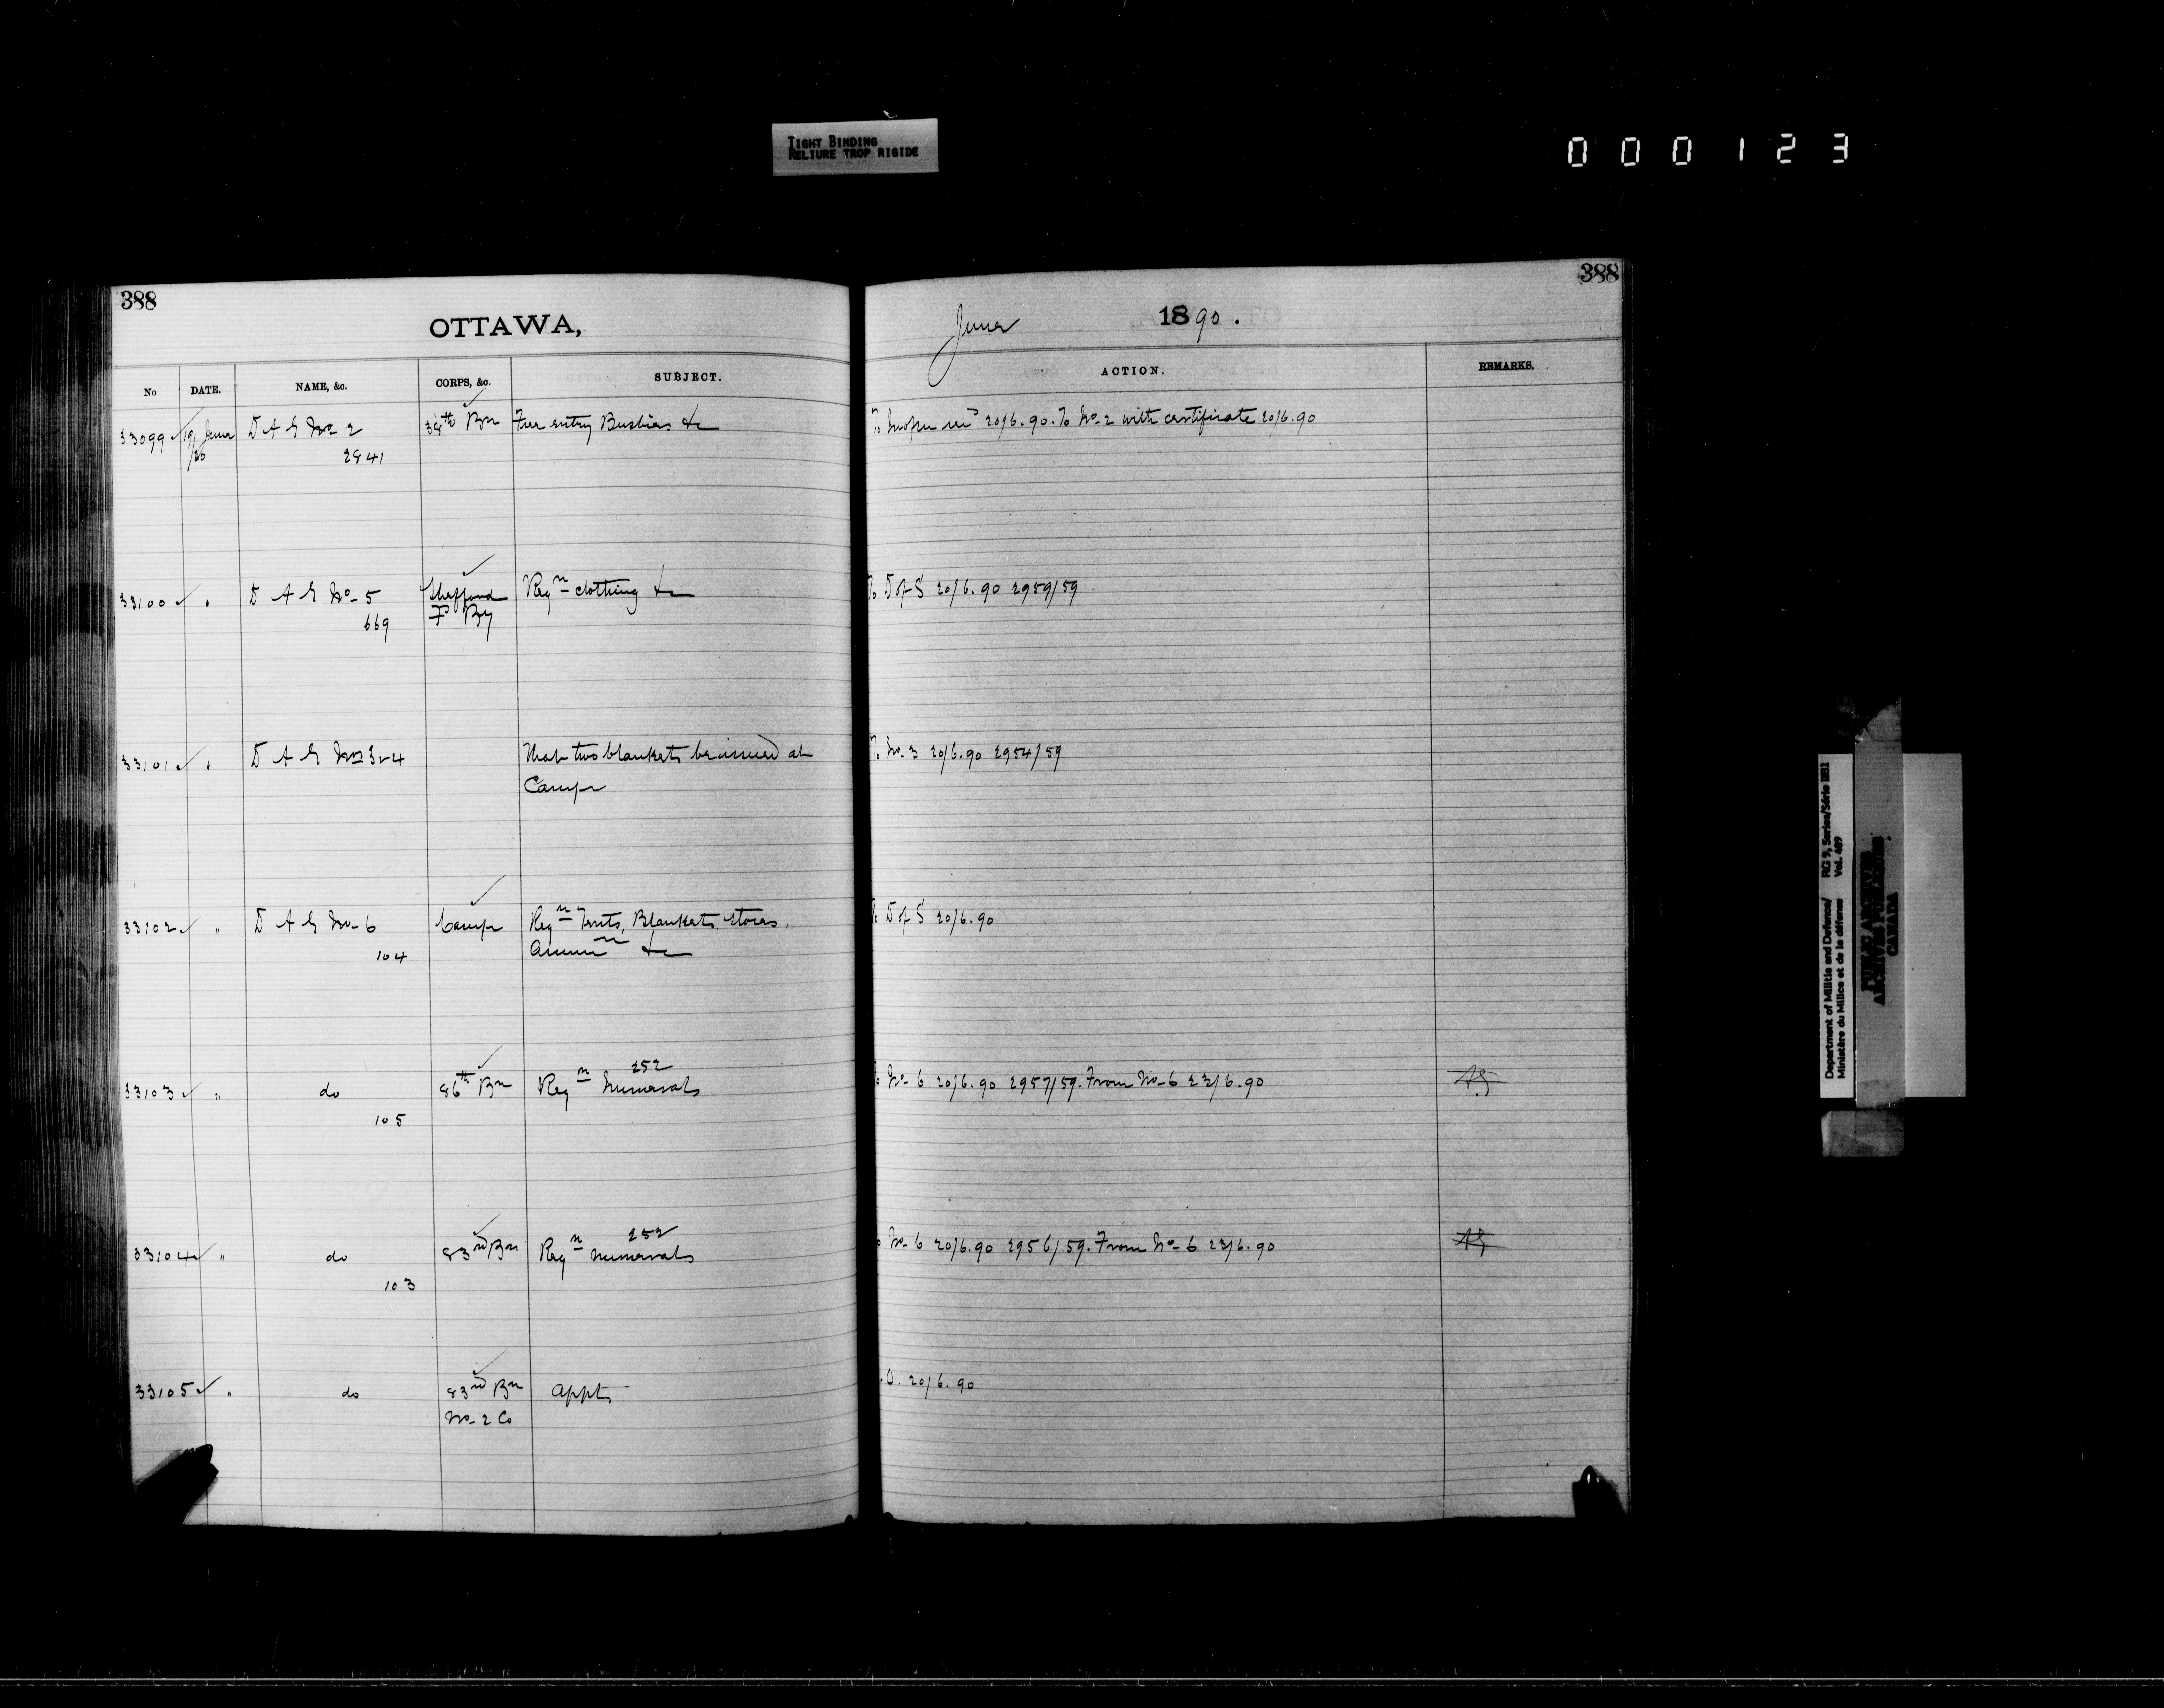 TIGHT BINDING
RELIURE TROP RIGIDE
000123
388
OTTAWA,
No DATE. NAME, &c. CORPS, &c. SUBJECT.
33099 19 June D A G No 2 38th Bn Free entry Busbies &c
/20 2841
33100 " D A G No 5 Shefford Reqn clothing &c
669 F By
33101 " D A G Nos 3 & 4 That two blankets be issued at
Camp
33102 " D A G No 6 Camp Reqn Tents, Blankets, Stores,
104 Ammn &c
252
33103 " do 86th Bn Reqn Numerals
105
252
33104 " do 83rd Bn Reqn Numerals
103
33105 " do 83rd Bn Appt
No 2 Co
388
June 1890.
ACTION. REMARKS.
20/6.90. To No 2 with certificate 20/6.90
To D of S 20/6.90 2959/59
To No. 3 20/6.90 2954/59
To D of S 20/6.90
To No 6 20/6.90 2957/59. From No 6 23/6.90
No 6 20/6.90 2956/59. From No 6 23/6.90
.O. 20/6.90
Department of Militia and Defence/ RG 9, Series/Série IIB1
Ministère du Milice et de la défense Vol. 489
PUBLIC ARCHIVES
ARCHIVES PUBLIQUES
CANADA